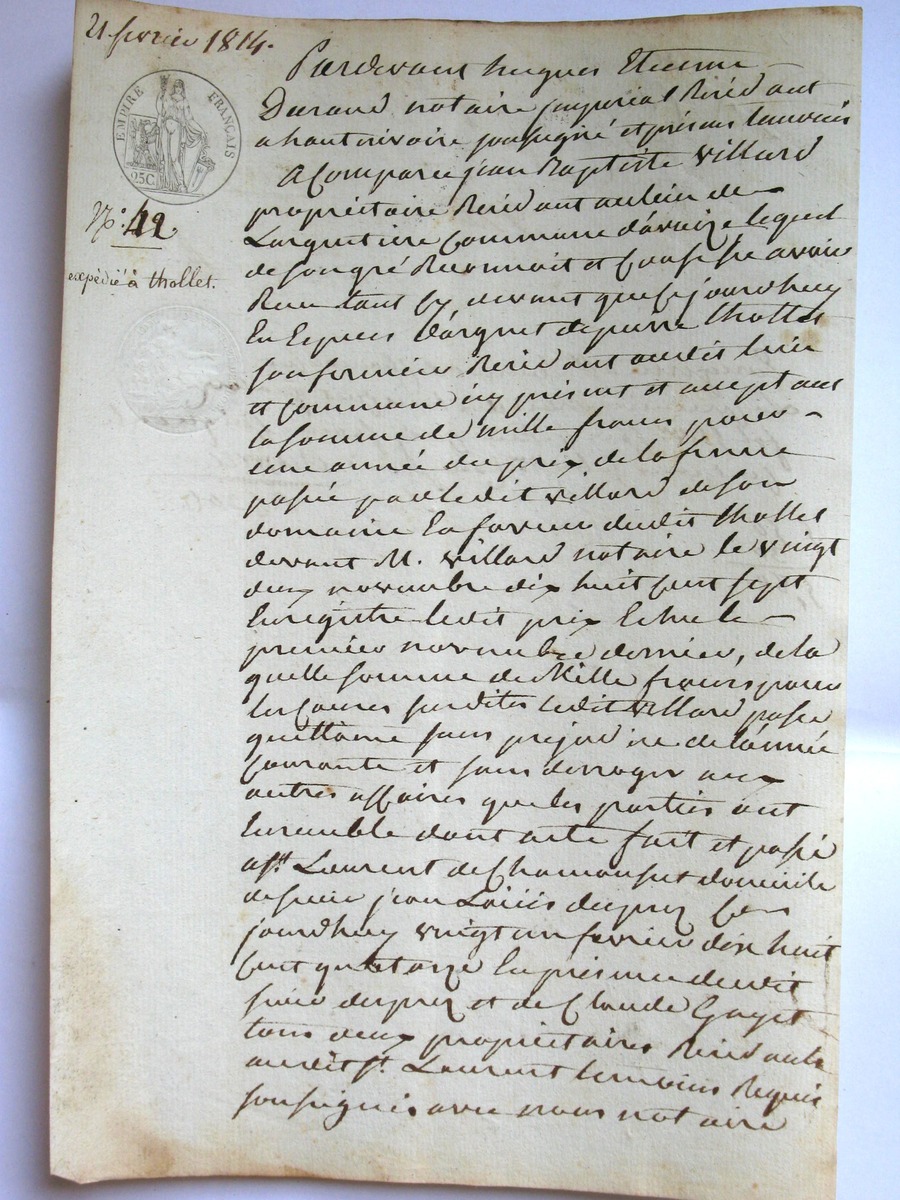 21 février 1814.
EMPIRE FRANÇAIS
25C.
N.° 42.
expédié à thollet.
Pardevant hugues Etienne
Durand notaire jmperial Resid ant
a hautrivoire soussigné et présens temoins
A Comparu jean Baptiste villard
propriétaire Resid ant au lieu de
Largentiere Commune davaize lequel
de son gré Reconnoit et Confesse avoir
Recu tant Cy devant que Cejourdhuy
En Espèces d'argent de pierre thollet
son fermier Resid ant audit lieu
et Commune icy présent et accept ant
la somme de mille francs pour
une année du prix de la ferme
passée par ledit villard de son
domaine En faveur dudit thollet
devant M. villard notaire le vingt
deux novembre dix huit Cent sept
Enregistré ledit prix Echu le
premier novembre dernier, de la
quelle somme de Mille francs pour
les Causes susdites ledit villard passe
quittance sans prejudice de lannée
Courante et sans derroger aux
autres affaires que les parties ont
Ensemble dont acte fait et passé
a St. Laurent de Chamousset domicile
de sieur jean Louis duprez Ce
jourdhuy vingt un fevrier dix huit
Cent quatorze En présence dudit
sieur duprez et de Claude Gayet
tous deux propriétaires Resid ants
audit St. Laurent temoins Requis
soussignés avec nous notaire